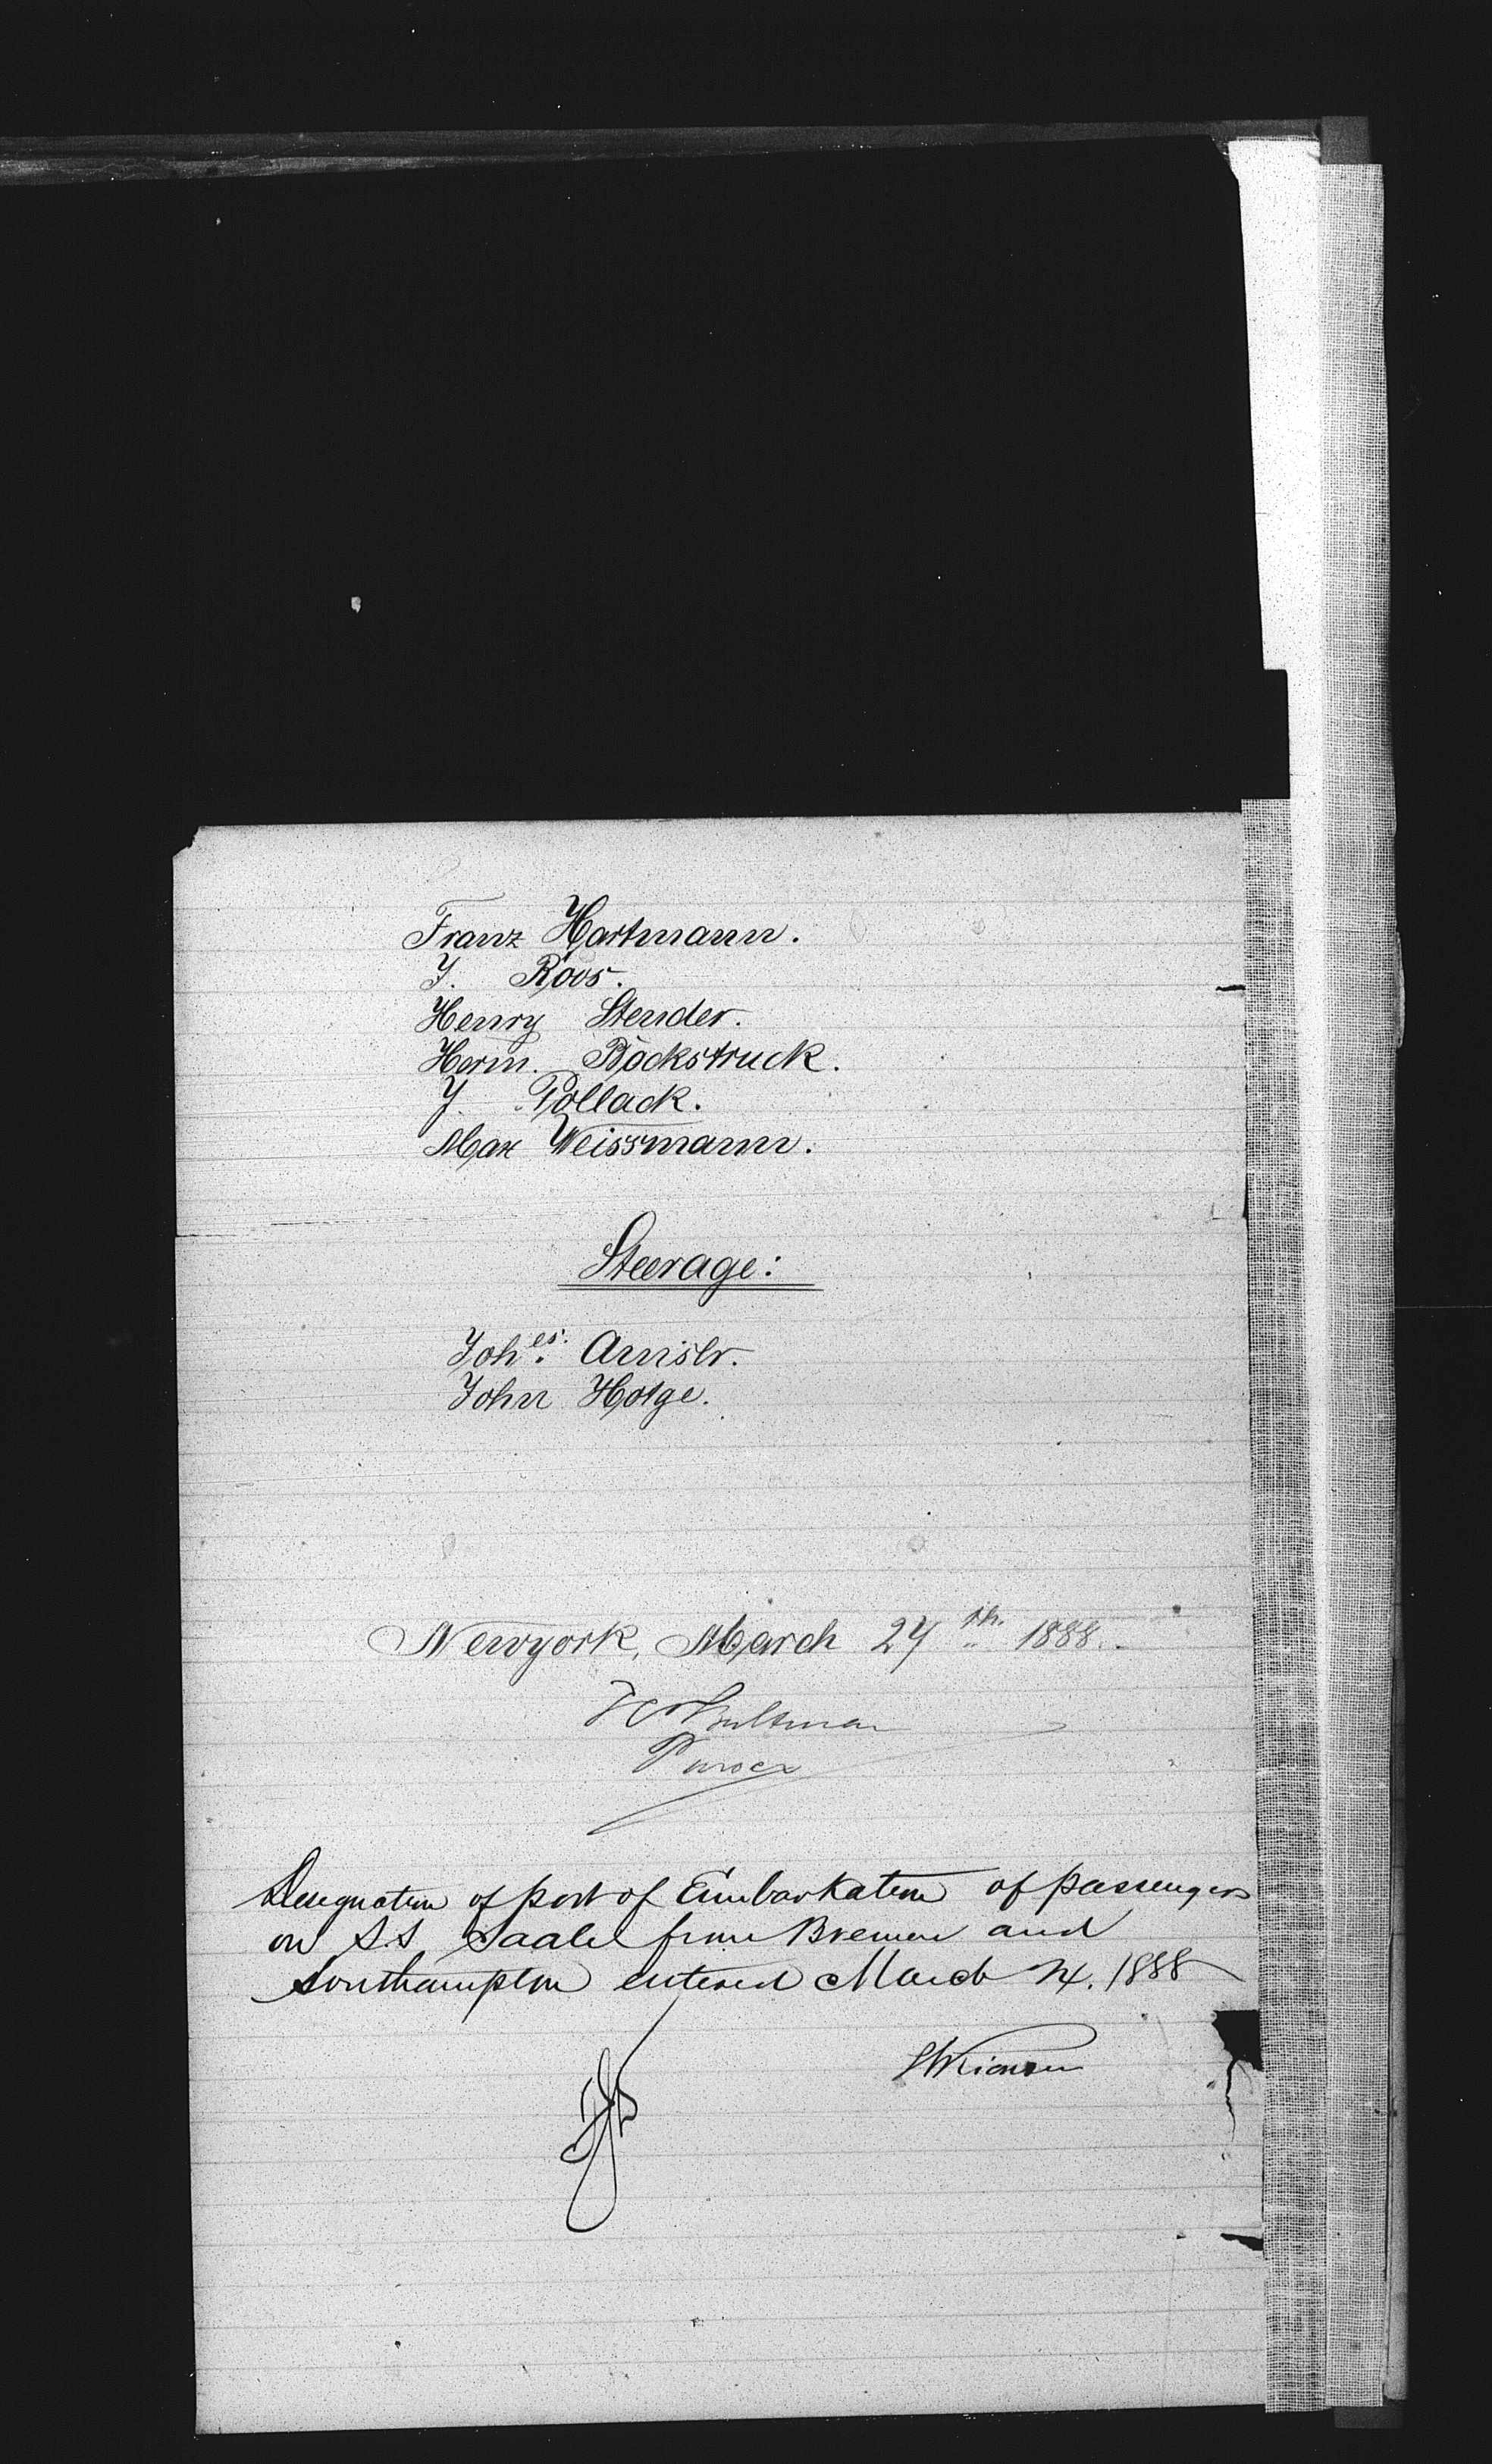 Franz Hartmann.
J. Roos.
Henry Stender.
Herm. Böckstruck.
J. Pollack.
Max Weissmann.
Steerage:
Joh es. Amslr.
John Hotge.
Newyork, March 24 th. 1888.
Purser
Designation of port of Embarkation of passengers
on S.S Saale from Bremen and
Southampton entered March 24. 1888